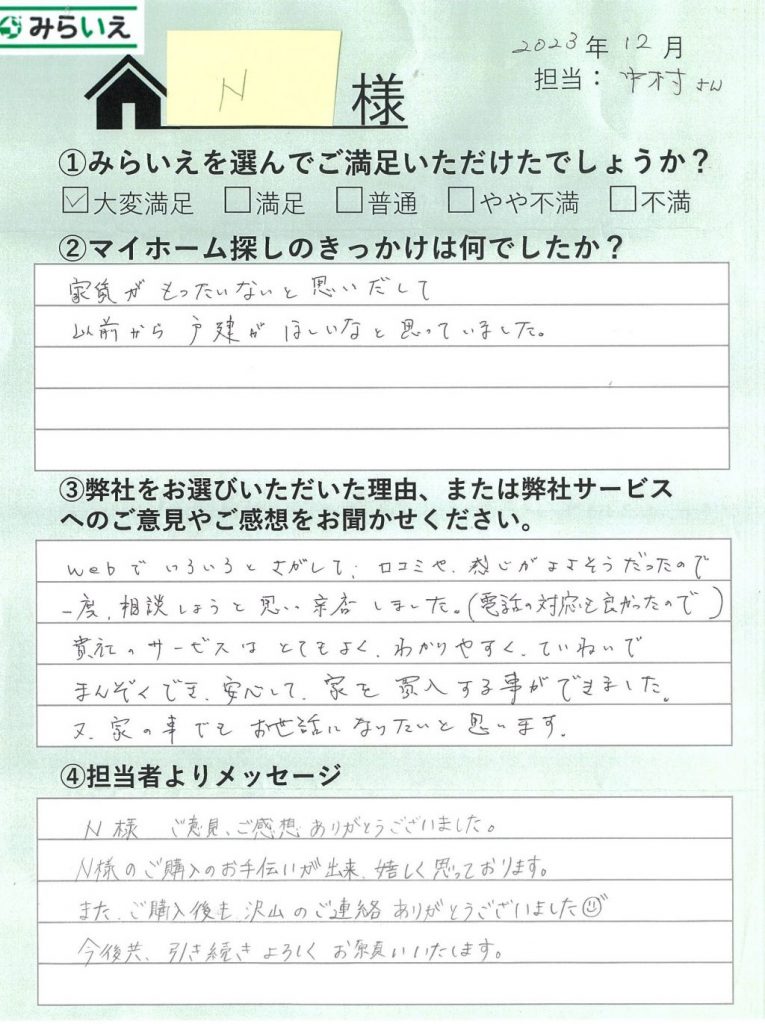 みらいえ
2023年12月
N 様
担当：中村さん
①みらいえを選んでご満足いただけたでしょうか？
☑大変満足 □満足 □普通 □やや不満 □不満
②マイホーム探しのきっかけは何でしたか？
家賃がもったいないと思いだして
以前から戸建がほしいなと思っていました。
③弊社をお選びいただいた理由、または弊社サービス
へのご意見やご感想をお聞かせください。
webでいろいろとさがして、口コミや、感じがよさそうだったので
一度、相談しようと思い来店しました。(電話の対応も良かったので)
貴社のサービスはとてもよく、わかりやすく、ていねいで
まんぞくでき、安心して、家を買入する事ができました。
又、家の事でもお世話になりたいと思います。
④担当者よりメッセージ
N様 ご意見、ご感想ありがとうございました。
N様のご購入のお手伝いが出来、嬉しく思っております。
また、ご購入後も沢山のご連絡ありがとうございました☺
今後共、引き続きよろしくお願いいたします。